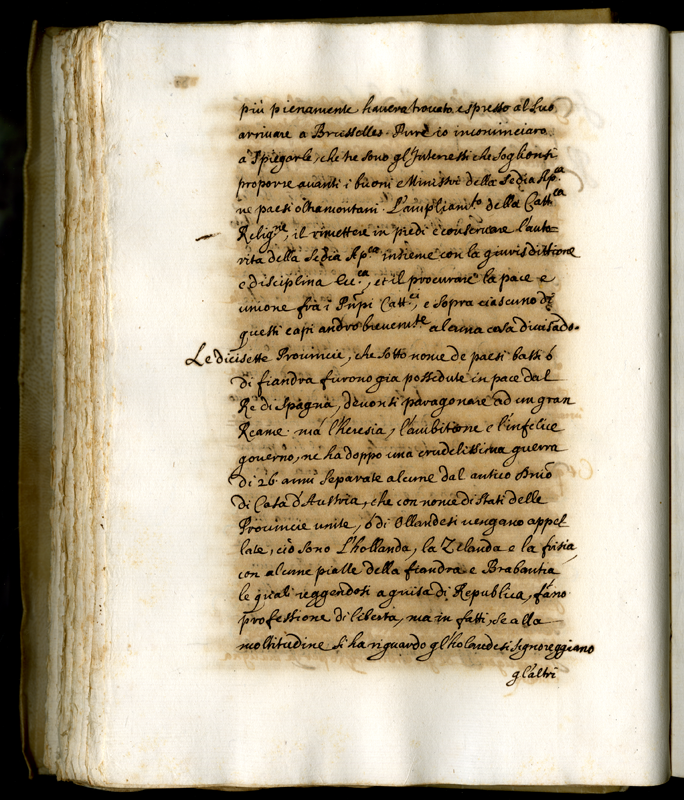 più pienamente havera trovato espresso al suo
arrivare a Brusselles. Pure io incominciaro
a spiegarle, che tre sono gl'Interessi che soglionsi
proporre avanti i buoni Ministri della Sedia Ap.ca
ne paesi oltramontani. L'ampliam.to della Catt.ca
Relig.ne, il rimettere in piedi e conservare l'auto
rità della Sedia Ap.ca insieme con la giurisdittione
e disciplina Ecc.ca, et il procurare la pace e
unione frà i Pñpi Catt.ci, e sopra ciascuno di
questi capi andrò brevem.te alcuna cosa divisado.
Le dicisette Provincie, che sotto nome de paesi bassi ò
di fiandra furono gia possedute in pace dal
Rè di Spagna, devonsi paragonare ad un gran
Reame. mà l'heresia, l'ambitione e l'infelice
governo, ne ha doppo una crudelissima guerra
di 26. anni separate alcune dal antico Dnio
di Casa d'Austria, che con nome di stati delle
Provincie unite, ò di Ollandesi vengano appel
late, ciò sono L'hollanda, la Zelanda e la frisia,
con alcune piazze della fiandra e Brabantia
le quali reggendosi a guisa di Republica, fano
professione di libertà, ma in fatti, se alla
moltitudine si ha riguardo gl'holandesi signoreggiano
gl'altri